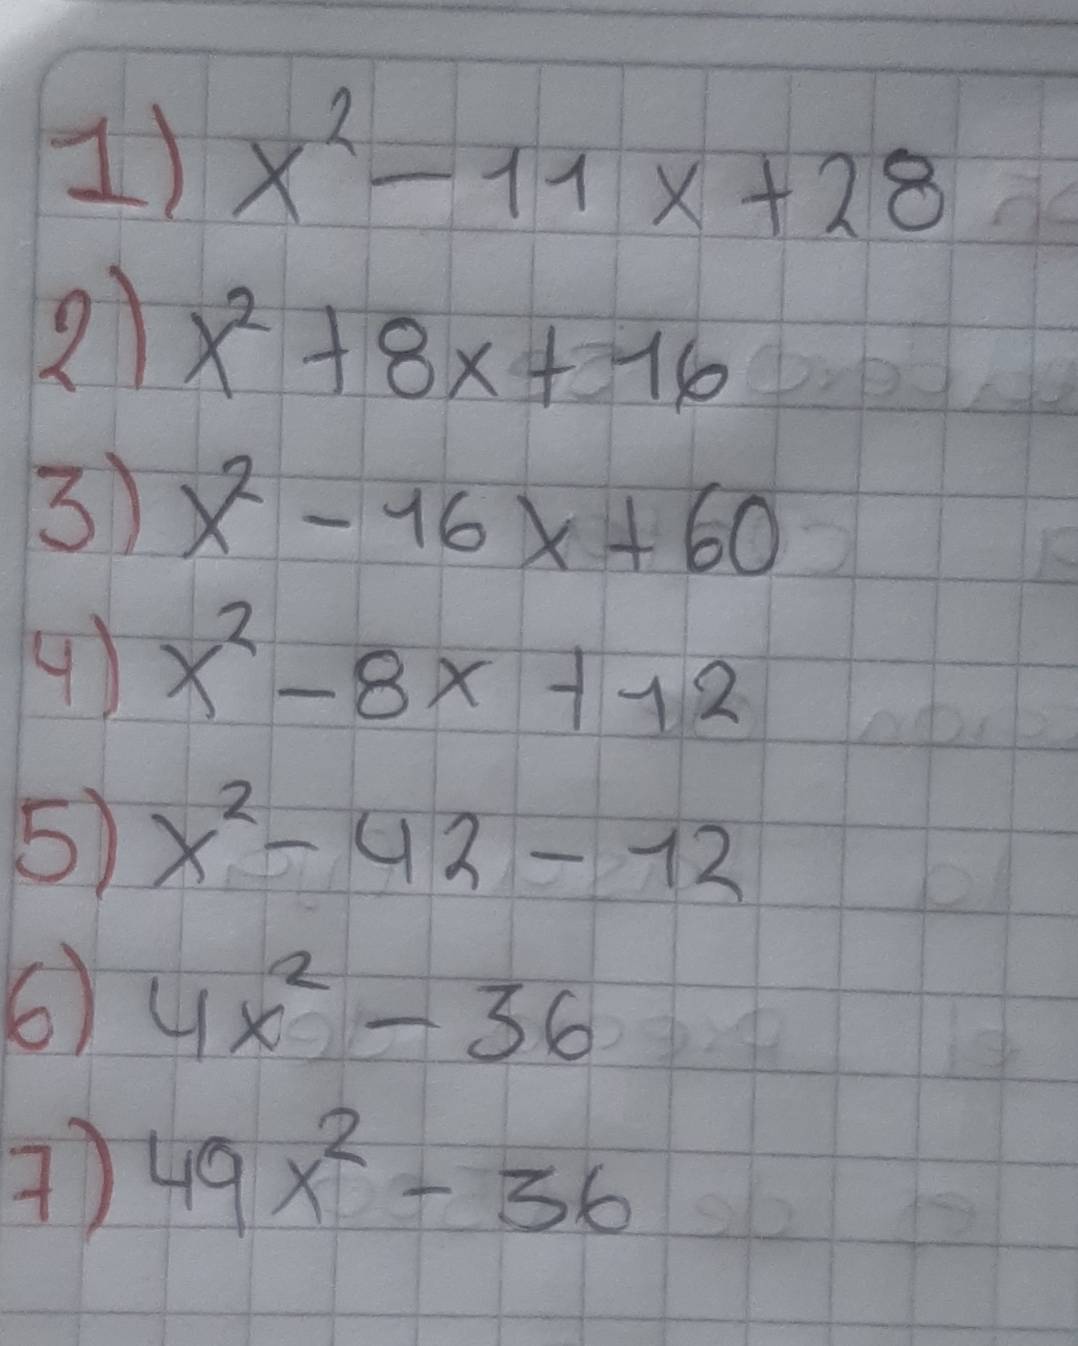 1) x² - 11x + 28
2) x² + 8x + 16
3) x² - 16x + 60
4) x² - 8x + 12
5) x² - 42 - 12
6) 4x² - 36
7) 49x² - 36